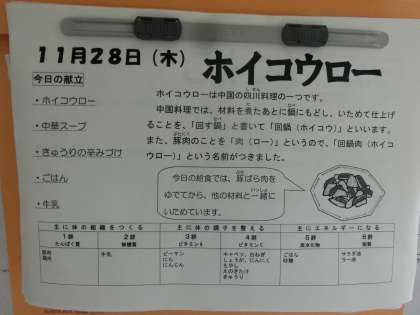 11月28日(木)
ホイコウロー
今日の献立
・ホイコウロー
・中華スープ
・きゅうりの辛みづけ
・ごはん
・牛乳
ホイコウローは中国の四川料理の一つです。
中国料理では、材料を煮たあとに鍋にもどし、いためて仕上げ
ることを、「回す鍋」と書いて「回鍋(ホイコウ)」といいます。
また、豚肉のことを「肉(ロー)」というので、「回鍋肉(ホイコ
ウロー)」という名前がつきました。
今日の給食では、豚ばら肉を
ゆでてから、他の材料と一緒に
いためています。
主に体の組織をつくる
主に体の調子を整える
主にエネルギーになる
1群
2群
3群
4群
5群
6群
たんぱく質
無機質
ビタミンA
ビタミンC
炭水化物
脂質
豚肉
牛乳
ピーマン
にら
にんじん
キャベツ、白ねぎ
しょうが、にんにく
もやし
えのきたけ
きゅうり
ごはん
砂糖
サラダ油
ラー油